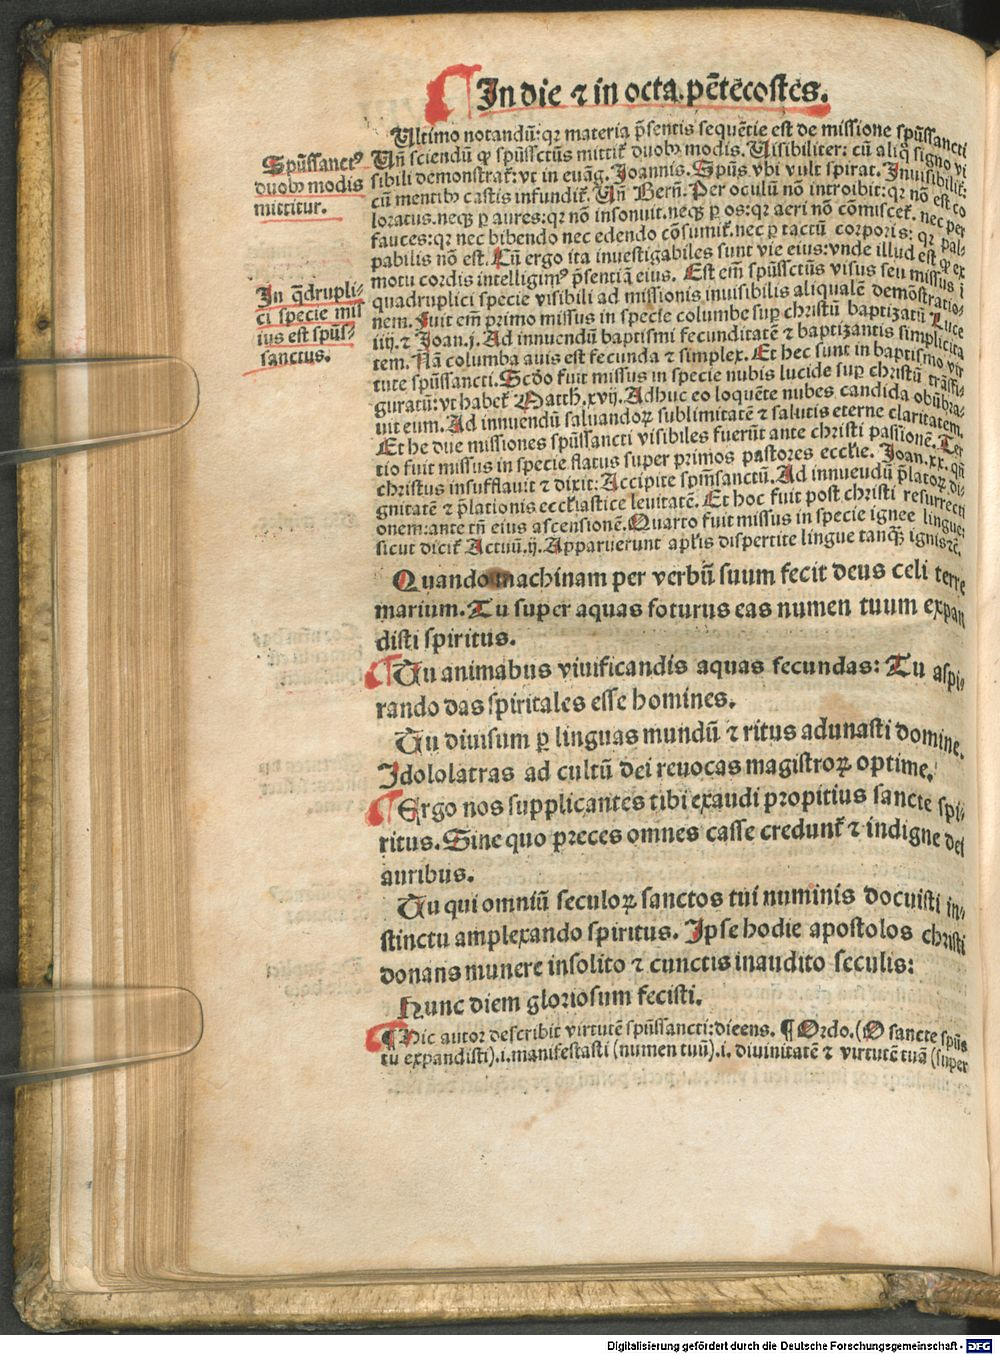 In die ⁊ in octa. pētecostes.
Ultimo notandū: qꝛ materia p̄sentis sequētie est de missione spūssancti
Spūssanctꝰ
duobꝫ modis
mittitur.
Uñ sciendū ꝙ spūssctūs mittit᷑ duobꝫ modis. Uisibiliter: cū aliq̄ signo vi
sibili demonstrat᷑: vt in euāg. Joannis. Spūs vbi vult spirat. Inuisibilit᷑:
cū mentibꝫ castis infundit᷑. Uñ Berñ. Per oculū nō introibit: qꝛ nō est co
loratus. neqꝫ ꝑ aures: qꝛ nō insonuit. neqꝫ ꝑ os: qꝛ aeri nō cōmiscet᷑. nec per
fauces: qꝛ nec bibendo nec edendo cōsumit᷑. nec ꝑ tactū corporis: qꝛ pal-
pabilis nō est. Cū ergo ita inuestigabiles sunt vie eius: vnde illud est ꝙ ex
motu cordis intelligimꝰ p̄sentiā eius. Est em̄ spūssctūs visus seu missus ī
In q̄drupli-
ci specie mis
sus est spūs-
sanctus.
quadruplici specie visibili ad missionis inuisibilis aliqualē demōstratio-
nem. Fuit em̄ primo missus in specie columbe sup̱ christū baptizatū Luce
iiij. ⁊ Joan. j. Ad innuendū baptismi fecunditatē ⁊ baptizantis simplicita
tem. Nā columba auis est fecunda ⁊ simplex. Et hec sunt in baptismo vir
tute spūssancti. Scdo fuit missus in specie nubis lucide sup̱ christū trāsfi-
guratū: vt habet᷑ Matth. xvij. Adhuc eo loquēte nubes candida obūbra-
uit eum. Ad innuendū saluandoꝝ sublimitatē ⁊ salutis eterne claritatem.
Et he due missiones spūssancti visibiles fuerūt ante christi passionē. Ter
tio fuit missus in specie flatus super primos pastores eccl̄ie. Joan. xx. qn̄
christus insufflauit ⁊ dixit: Accipite spm̄sanctū. Ad innuendū p̄latoꝝ di-
gnitatē ⁊ p̄lationis eccl̄iastice leuitatē. Et hoc fuit post christi resurrecti
onem: ante tn̄ eius ascensionē. Quarto fuit missus in specie ignee lingue:
sicut dicit᷑ Actuū. ij. Apparuerunt apl̄is dispertite lingue tanqꝫ ignis ⁊c̄.
Quando machinam per verbū suum fecit deus celi terre
marium. Tu super aquas foturus eas numen tuum expan
disti spiritus.
Tu animabus viuificandis aquas fecundas: Tu aspi-
rando das spiritales esse homines.
Tu diuisum ꝑ linguas mundū ⁊ ritus adunasti domine.
Idololatras ad cultū dei reuocas magistroꝝ optime.
Ergo nos supplicantes tibi exaudi propitius sancte spi-
ritus. Sine quo preces omnes casse credunt᷑ ⁊ indigne dei
auribus.
Tu qui omniū seculoꝝ sanctos tui numinis docuisti in-
stinctu amplexando spiritus. Ipse hodie apostolos christi
donans munere insolito ⁊ cunctis inaudito seculis:
Nunc diem gloriosum fecisti.
¶ Hic autor describit virtutē spūssancti: dicens. ¶ Ordo. (O sancte spūs
tu expandisti). i. manifestasti (numen tuū). i. diuinitatē ⁊ virtutē tuā (super
Digitalisierung gefördert durch die Deutsche Forschungsgemeinschaft - DFG